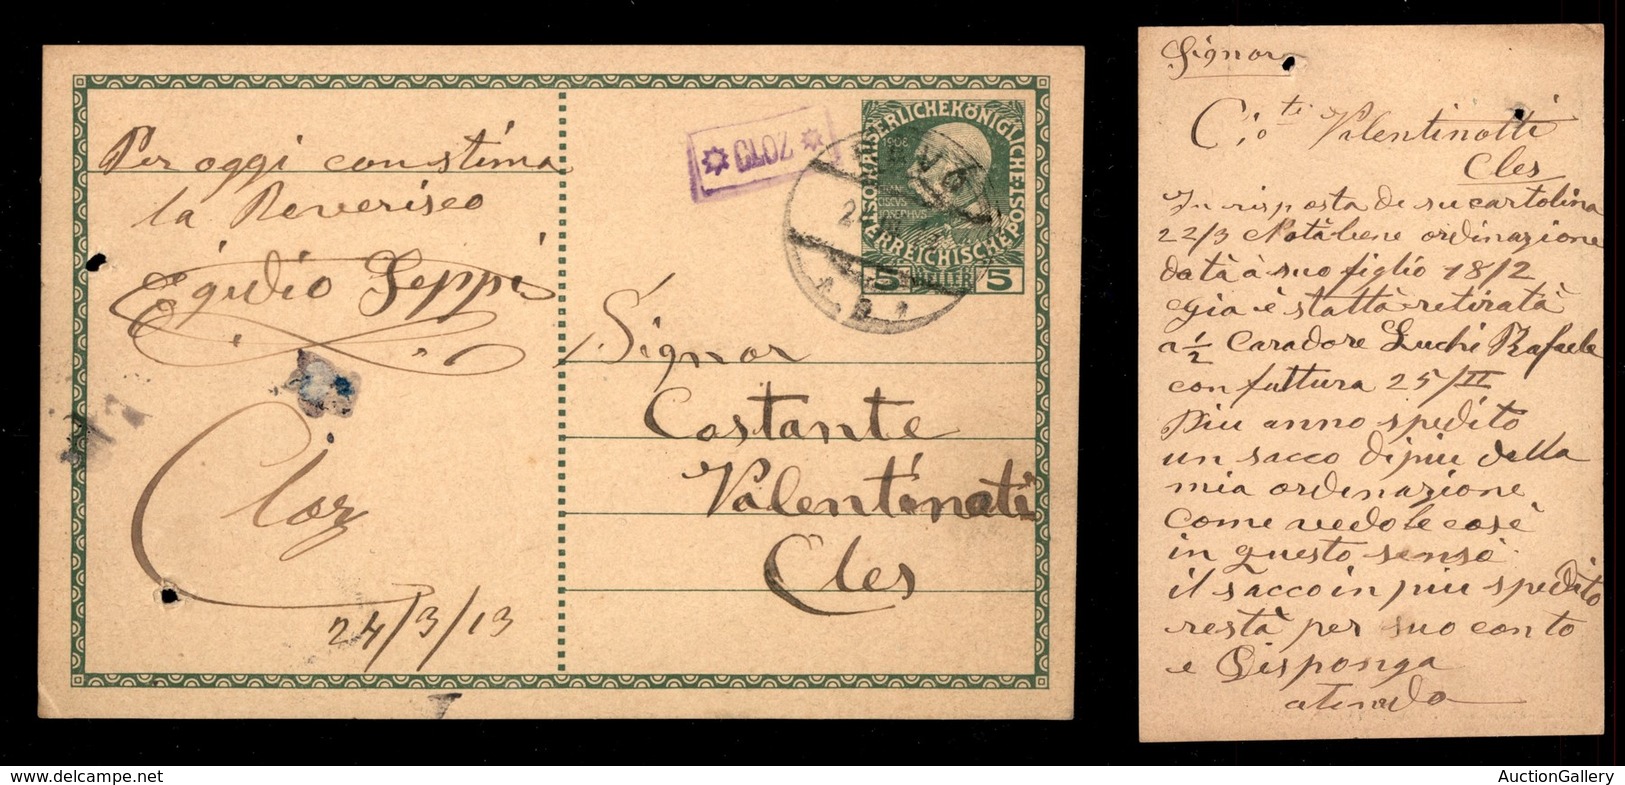 Per oggi con stima
la Reverisco
Egidio Seppi
Cloz
24/3/13
✲ CLOZ ✲
KAISERLICHEKÖNIGLICHE POST
ÖSTERREICHISCHE
1908
FRAN
CISCVS
JOSEPHVS
5 HELLER 5
REVÒ
Signor
Costante
Valentinoti
Cles
Signor
C. Valentinotti
Cles
In risposta de su cartolina
22/3 Notabene ordinazione
data à suo figlio 18/2
egia è statta retirata
a ½ Caradore Luchi Rafaele
con fattura 25/II
Piu anno spedito
un sacco di piu della
mia ordenazione
Come vedo le cose
in questo senso
il sacco in piu spedito
resta per suo conto
e Disponga
AuctionGallery